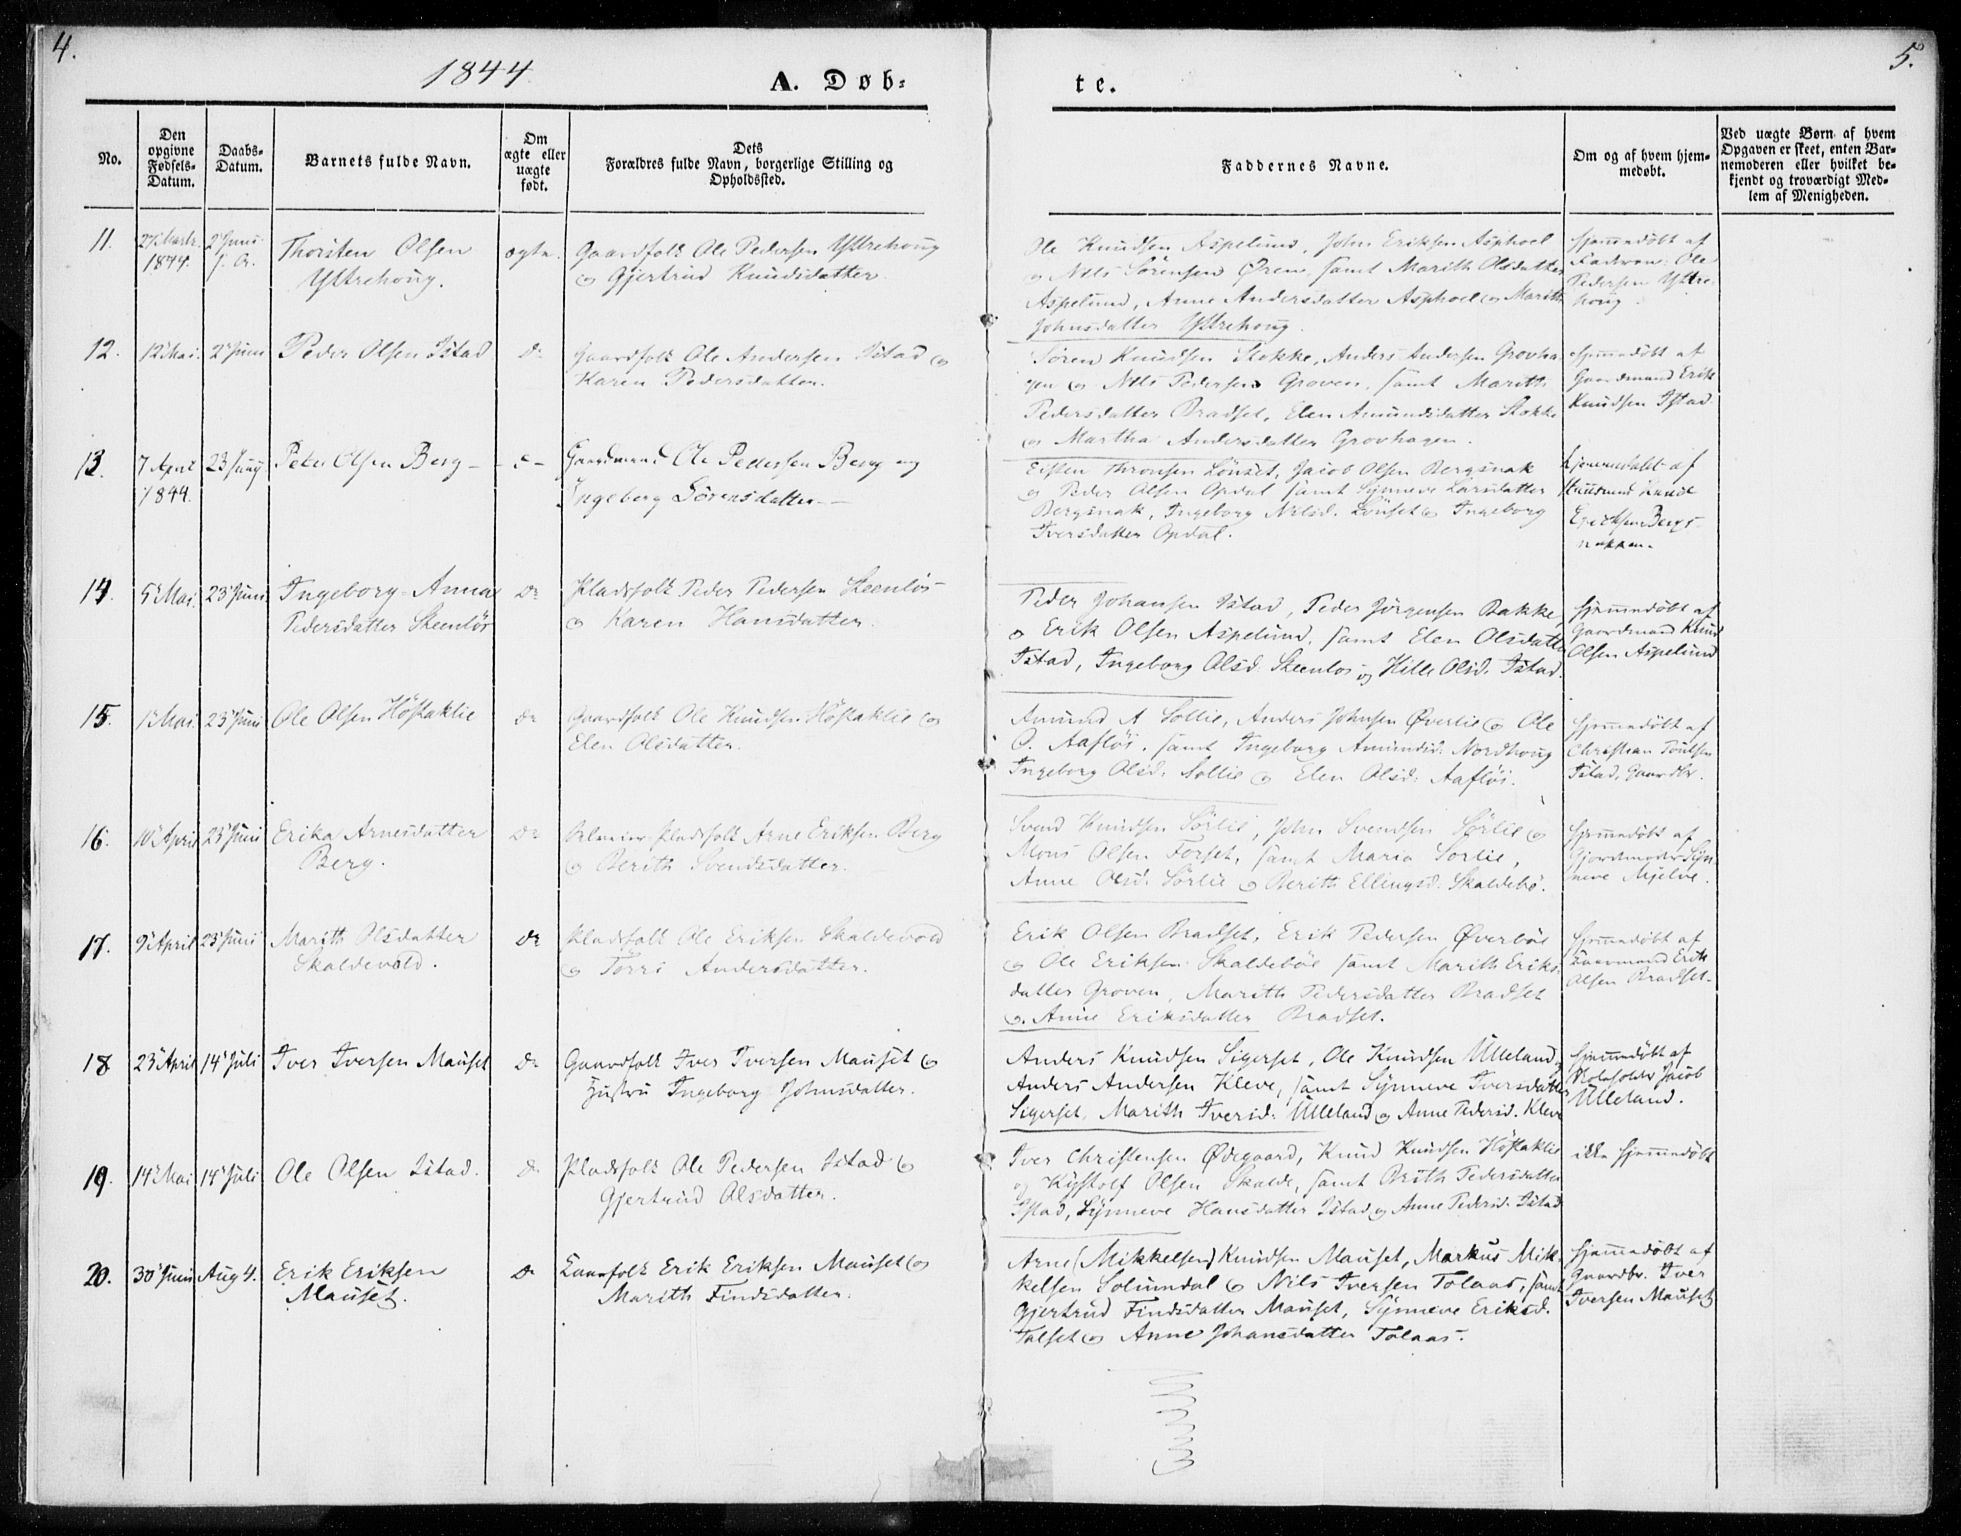 4.
1844
A. Døb-
te.
5.
No.
Den opgivne Fødsels-Datum.
Daabs-Datum.
Barnets fulde Navn.
Om ægte eller uægte født.
Dets Forældres fulde Navn, borgerlige Stilling og Opholdssted.
Faddernes Navne.
Om og af hvem hjem-
medøbt.
Ved uægte Børn af hvem
Opgaven er skeet, enten Bar-
nemoderen eller hvilket be-
kjendt og troværdigt Med-
lem af Menigheden.
11.
27 Marts
1844.
2 Juni
Thorsten Olsen
Yttrehoug.
ægte.
Gaardfolk Ole Pedersen Yttrehoug
og Gjertrud Knudsdatter
Ole Knudsen Aspelund, John Eriksen Asphoel
og Nils Sörensen Øren, samt Marith Olsdatter
Aspelund, Anne Andersdatter Asphoel og Marith
Johnsdatter Yttrehoug.
hjemmedöbt af
Faderen Ole
Pedersen Yttre-
houg
12.
12 Mai
2 Juni
Peder Olsen Istad
do
Gaardfolk Ole Andersen Istad og
Karen Pedersdatter.
Sören Knudsen Stokke, Anders Andersen Grovha-
gen og Nils Pedersen Groven, samt Marith
Pedersdatter Bradset, Elen Amundsdatter Stokke
og Martha Andersdatter Grovhagen.
hjemmedöbt af
Gaardmand Erik
Knudsen Istad
13.
7 April
1844.
23 Juny
Peter Olsen Berg
Gaardmand Ole Pedersen Berg og
Ingeborg Sörensdatter
Thronsen Lönset, Jacob Olsen Bergsnak
og Peder Olsen Opdal samt Synneve Larsdatter
Bergsnak, Ingeborg Nilsd. Lönset og Ingeborg
Iversdatter Opdal.
hjemmedøbt af
Knud
Ericksen Bergs-
nakken.
14.
5 Mai
23 Juni
Ingeborg Anna
Pedersdatter Steenlös
do
Pladsfolk Peder Pedersen Steenlös
og Karen Hansdatter.
Peder Johansen Istad, Peder Jörgensen Bakke,
og Erik Olsen Aspelund, samt Elen Olsdatter
Istad, Ingeborg Olsd. Steenlos og Kille Olsd. Istad.
hjemmedöbt af
Gaardmand Knud
Olsen Aspelund
15.
1 Mai
23 Juni
Ole Olsen Höstaklie
do
Gaardfolk Ole Knudsen Höstaklie og
Elen Olsdatter.
Amund A Sollie, Anders Johnsen Överlie og Ole
O. Aaflöi, samt Ingeborg Amundsd. Nordhoug
Ingeborg Olsd. Sollie og Elen Olsd. Aaflöi.
hjemmedöbt af
Christian
Istad, Gaardbr.
16.
10 April
23 Juni
Erika Arnesdatter
Berg.
do
Pladsfolk Arne Eriksen Berg
og Berith Svendsdatter.
Svend Knudsen Sörlie, John Svendsen Sörlie og
Mons Olsen Forset, samt Maria Sorlie,
Anne Olsd. Sörlie og Berith Ellingsd. Skaldebö.
hjemmedöbt af
Gjordmoder Syn-
neve Mjelve.
17.
9 April
23 Juni
Marith Olsdatter
Skaldevold.
do
Pladsfolk Ole Eriksen Skaldevold
og Törri Andersdatter.
Erik Olsen Bradset, Erik Pedersen Överböe
og Ole Eriksen Skaldeböe samt Marith Eriks-
datter Groven, Marith Pedersdatter Bradset
og Anne Eriksdatter Bradset.
hjemmedöbt af
Erik
Olsen Bradset.
18
23 April
14 Juli
Iver Iversen Mauset
do
Gaardfolk Iver Iversen Mauset og
Hustru Ingeborg Johnsdatter.
Anders Knudsen Sigerset, Ole Knudsen Ulleland,
Anders Andersen Kleve, samt Synneve Iversdatter
Sigerset, Marith Iversd. Ulleland og Anne Pedersd. Kleve
hjemmedöbt af
Skoleholder Jacob
Ulleland.
19.
14 Mai
14 Juli
Ole Olsen Istad.
do
Pladsfolk Ole Pedersen Istad og
Gjertrud Olsdatter.
Iver Christensen Ödegaard, Knud Knudsen Höstaklie
og Olsen Skalde, samt Brith Pedersdatter
Istad, Synneve Hansdatter Istad og Anne Pedersd. Istad
ikke hjemmedöbt
20.
30 Juni
Aug 4.
Erik Eriksen
Mauset.
do
Erik Eriksen Mauset og
Marith Findsdatter.
Arne (Mikkelsen) Knudsen Mauset, Markus Mik-
kelsen Solumdal og Nils Iversen Tolaas, samt
Gjertrud Findsdatter Mauset, Synneve Eriksd.
Talset og Anne Johansdatter Tolaas.
hjemmedöbt af
Gaardbr. Iver
Iversen Mauset